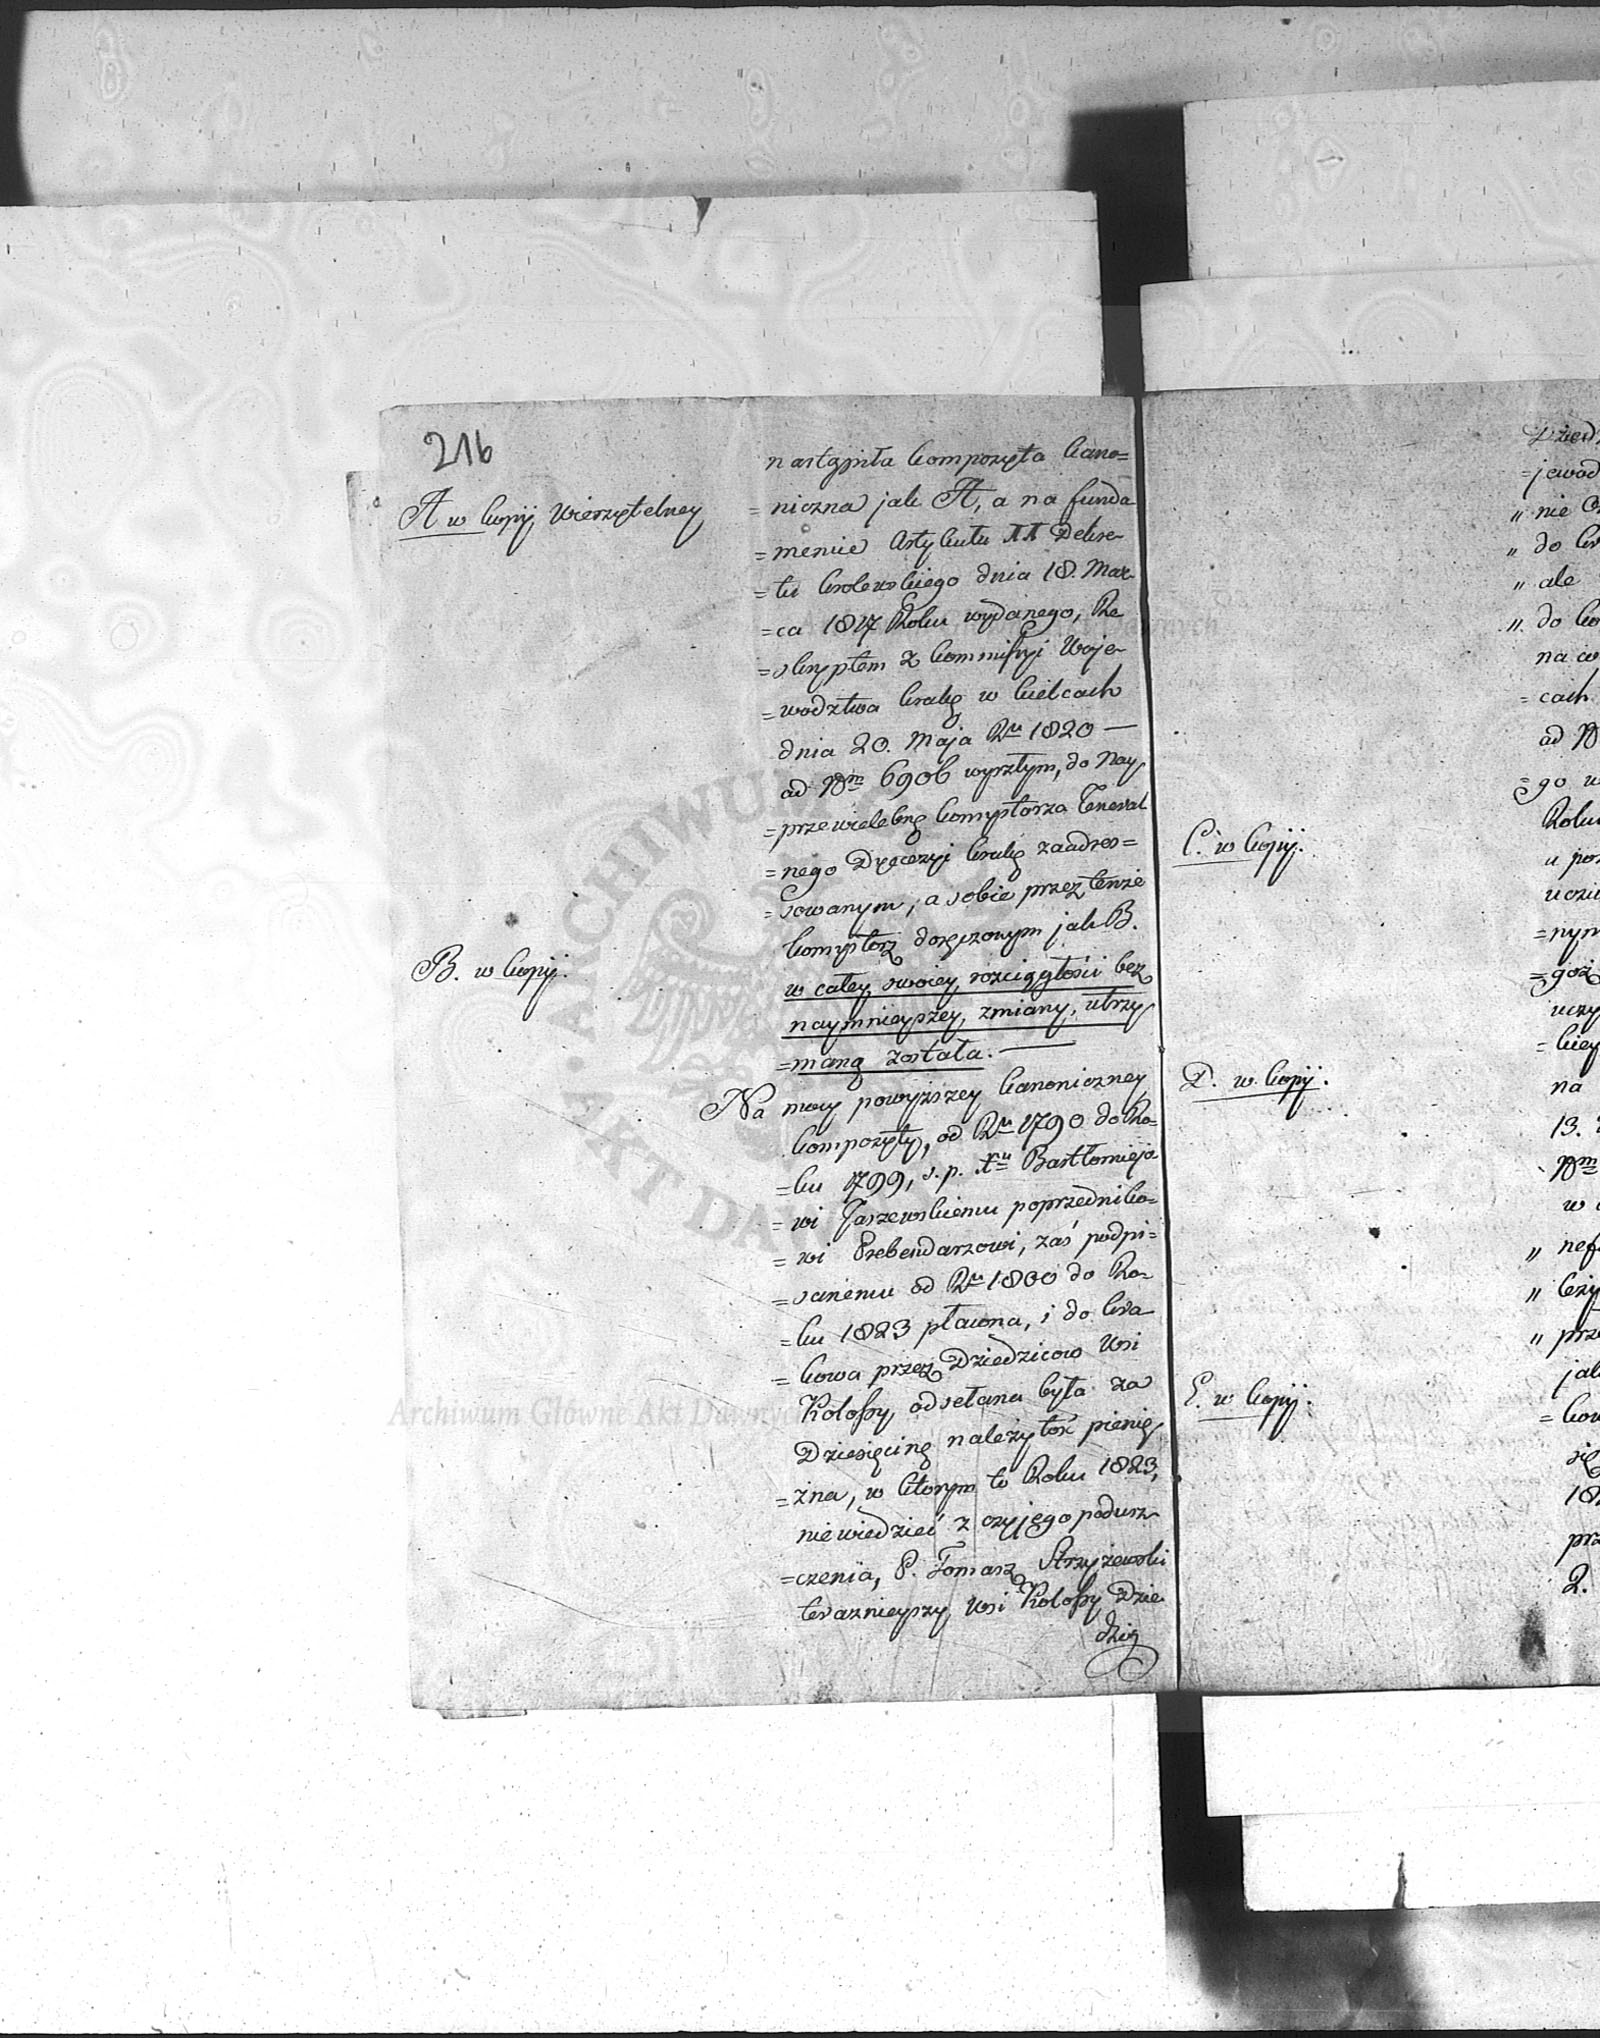 216
A w kopij wierzytelney
nastąpiła kompozyta kano=
=niczna jak A, a na funda
=mencie Artykułu XX Dekre-
=tu królewskiego dnia 18. Mar-
=ca 1817 Roku wydanego, Re
=skryptem z kommissyi Woje-
=wodztwa krakę w kielcach
dnia 20. Maja Ru 1820 —
ad Nm 6906 wyszłym, do Nay
=przewielebnę konsystorza General
=nego Dyęcezyi krakę zaadres=
=sowanym, a sobie przez tenże
konsystorz doręczonym jak B.
B. w kopij.
w całey swoiey rozciągłości bez
naymnieyszey zmiany, utrzy
=maną została. —
Na mocy powyższey kanoniczney
kompozyty, od Ru 1790 do Ro=
=ku 1799, s. p. Xu Bartłomieja
=wi Jaszewskiemu poprzedniko=
=wi Prebendarzowi, zaś podpi=
=sanemu od Ru 1800 do Ro-
=ku 1823 płacona, i do kra
=kowa przez Dziedziców wsi
Kolossy odsełana była za
Dziesięcinę należytość pienię
=żna, w którym to Roku 1823,
niewiedzieć z czyjego podusz-
=czenia, P. Tomasz Strzyżewski
teraznieyszy wsi Kolossy Dzie
dzic
Dzied
=jewod
„ nie
„ do kr
„ ale
„ do ko
na
=cach
ad N
=go w
Roku
C. w kopij.
u po
uczu
=nym
=goż
uczy
=kiey
D. w kopij.
na
13.
Nm
w
„ nef
„ leży
„ prze
jak
E. w kopij.
=kow
się
18
prz
2.
Archiwum Główne Akt Dawnych
ARCHIWUM
AKT DAW